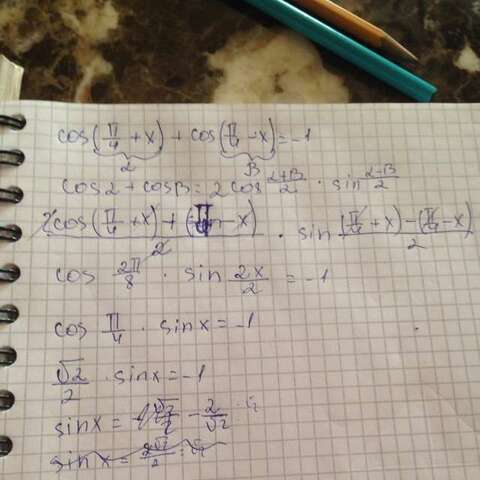 cos(π/4 + x) + cos(π/4 - x) = -1
2 β
cos2 + cosβ = 2 cos 2+β/2 · sin 2-β/2
2cos (π/4 + x) + (π/4 - x) · sin (π/4 + x) - (π/4 - x)/2
2
cos 2π/8 · sin 2x/2 = -1
cos π/4 · sin x = -1
√2/2 · sin x = -1
sin x = - 2/√2
sin x = 2√2/2